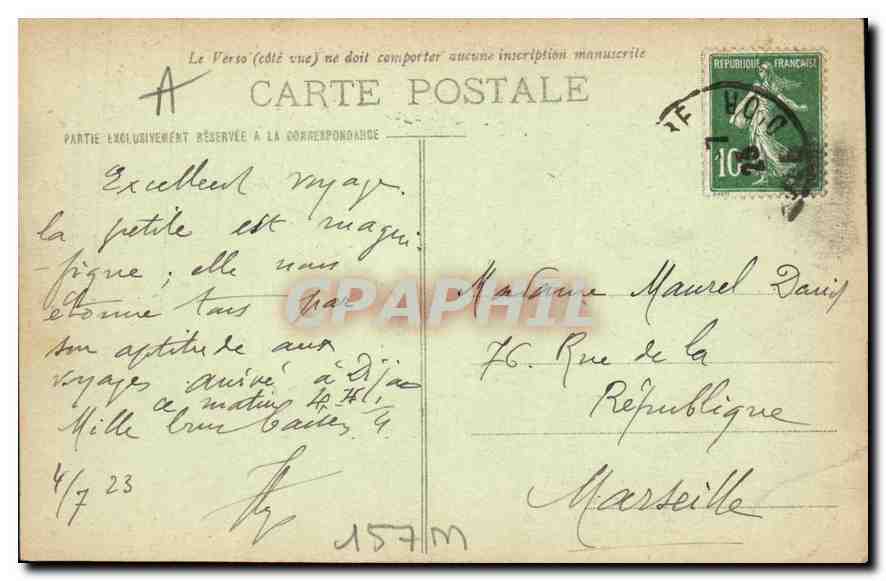 Le Verso (côté vue) ne doit comporter aucune inscription manuscrite
A
CARTE POSTALE
REPUBLIQUE FRANÇAISE
10
PARTIE EXCLUSIVEMENT RÉSERVÉE A LA CORRESPONDANCE
Excellent voyage.
la petite est magni-
fique ; elle nous
étonne tous par
son aptitude aux
voyages arrivé à Dijon
ce matin
Mille
4/7 23
Madame Maurel David
76. Rue de la
République
Marseille
157M
CPAPHIL